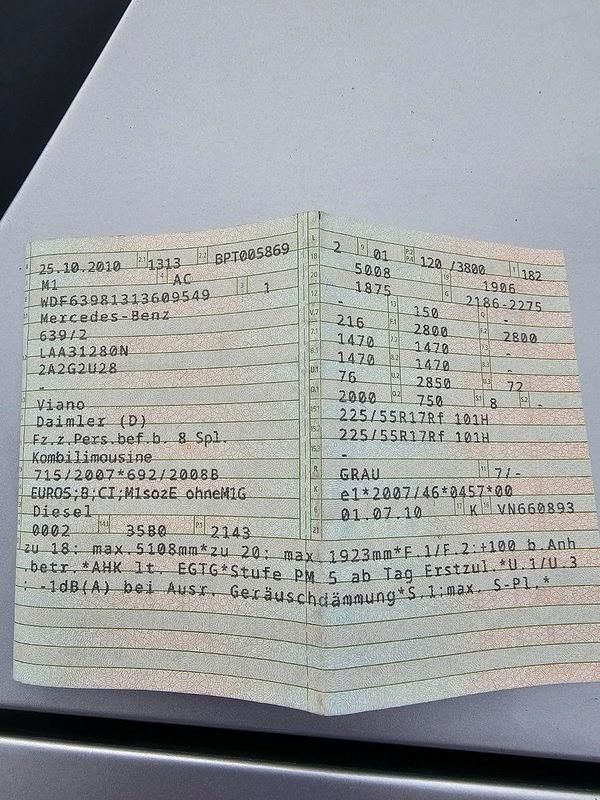 25.10.2010 2.1 1313 2.2 BPT005869
M1 4 AC
WDF63981313609549 3 1
Mercedes-Benz
639/2
LAA31280N
2A2G2U28
-
Viano
Daimler (D)
Fz.z.Pers.bef.b. 8 Spl.
Kombilimousine
715/2007*692/2008B
EURO5;B;CI;M1sozE ohneM1G
Diesel
0002 14.1 35B0 P.1 2143
L 2 9 01 P.2 P.4 120 /3800 T 182
18 5008 19 1906
20 1875 G 2186-2275
12 - 13 150 Q -
V.7 216 F.1 2800 F.2 2800
7.1 1470 7.2 1470 7.3 -
8.1 1470 8.2 1470 8.3 -
U.1 76 U.2 2850 U.3 72
O.1 2000 O.2 750 S.1 8 S.2 -
15.1 225/55R17Rf 101H
15.2 225/55R17Rf 101H
15.3 -
R GRAU 11 7/-
K e1*2007/46*0457*00
6 01.07.10 17 K 16 VN660893
21
zu 18: max.5108mm*zu 20: max. 1923mm*F.1/F.2:+100 b.Anh
.betr.*AHK lt. EGTG*Stufe PM 5 ab Tag Erstzul.*U.1/U.3
: -1dB(A) bei Ausr. Geräuschdämmung*S.1:max. S-Pl.*